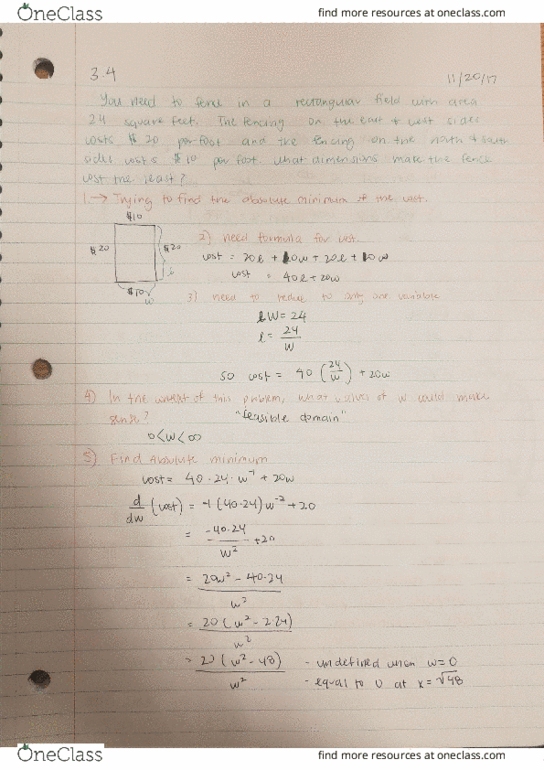 OneClass
find more resources at oneclass.com
3.4
11/20/17
You need to fence in a rectangular field with area
24 square feet. The fencing on the east + west sides
costs $ 20 per foot and the fencing on the north + south
sides costs $ 10 per foot. What dimensions make the fence
cost the least?
1. → Trying to find the absolute minimum of the cost.
$10
$20
$20
l
$10
w
2) need formula for cost.
cost = 20l + 10w + 20l + 10w
cost = 40l + 20w
3) need to reduce to only one variable
lW = 24
l = 24/W
so cost = 40 (24/w) + 20w
4) In the context of this problem, what values of w could make
sense? "feasible domain"
0<w<∞
5) Find Absolute minimum
cost = 40·24·w⁻¹ + 20w
d/dw (cost) = -1(40·24)w⁻² + 20
= -40·24/w² + 20
= 20w² - 40·24/w²
= 20(w² - 2·24)/w²
= 20(w² - 48)/w² - undefined when w=0
- equal to 0 at x=√48
OneClass
find more resources at oneclass.com